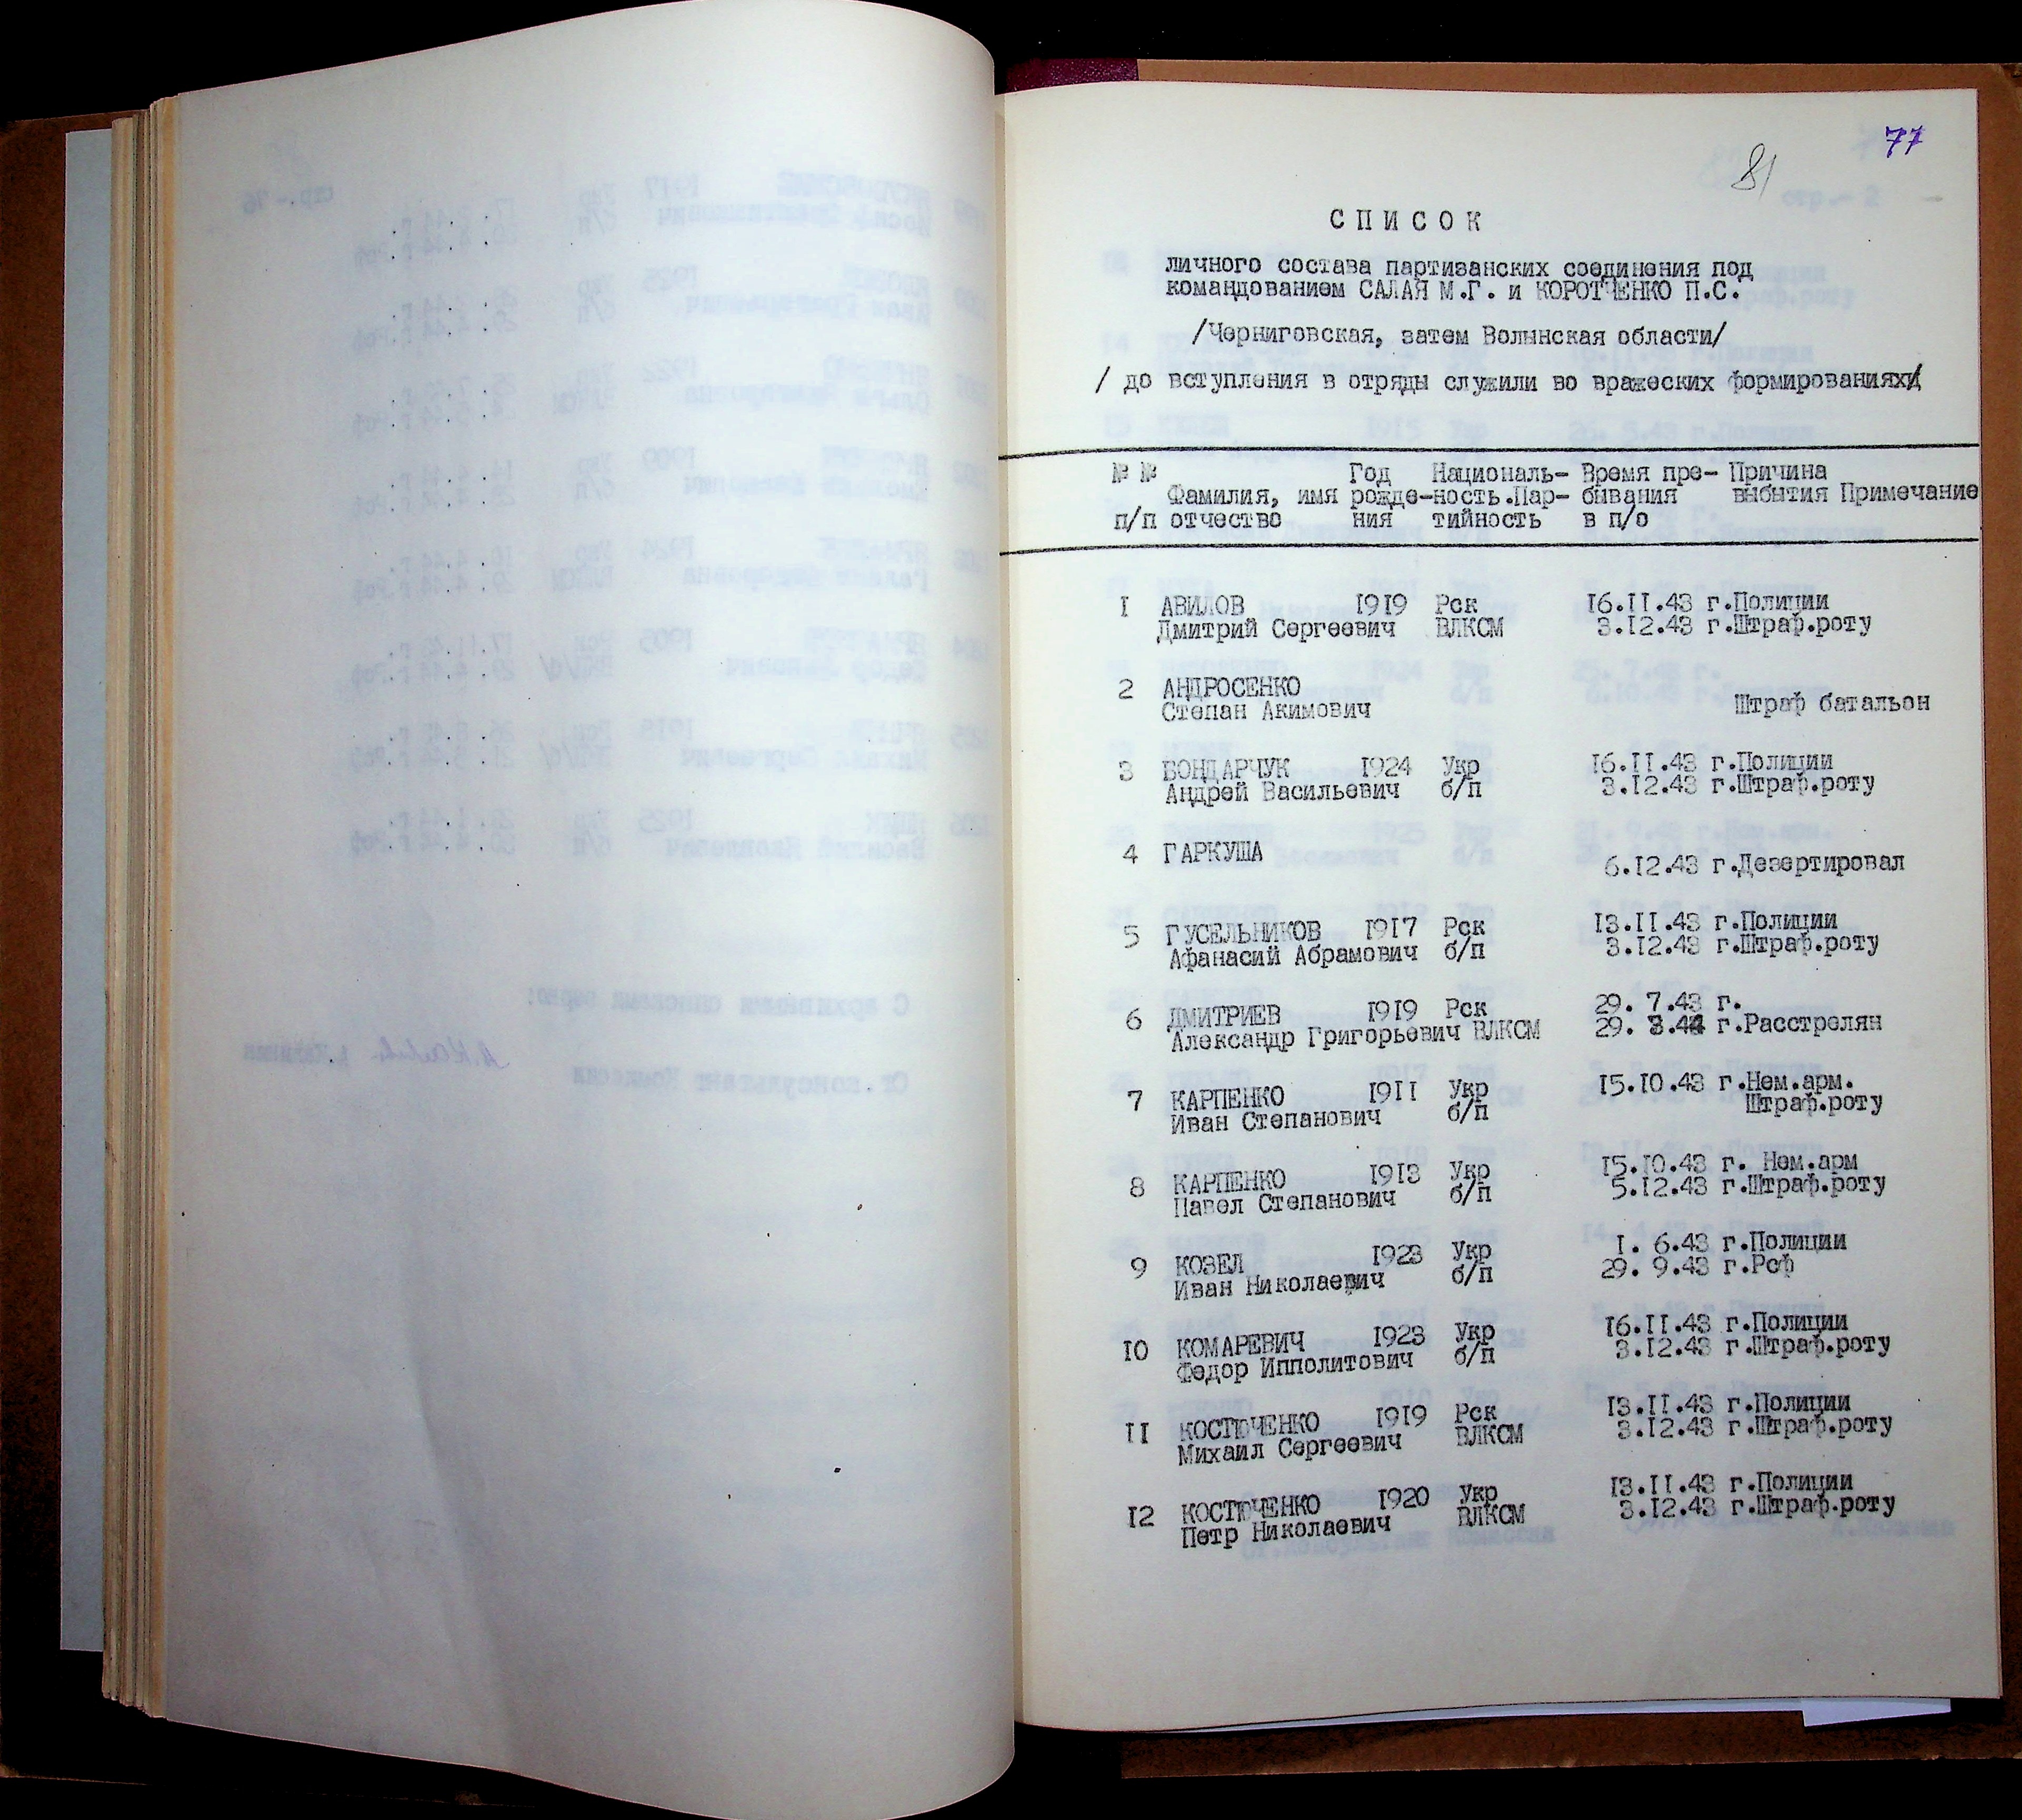 77
81
СПИСОК
личного состава партизанских соединения под
командованием САЛАЯ М.Г. и КОРОТЧЕНКО П.С.
/Черниговская, затем Волынская области/
/ до вступления в отряды служили во вражеских формированиях/
№ № Год Националь- Время пре- Причина
Фамилия, имя рожде-ность.Пар- бывания выбытия Примечание
п/п отчество ния тийность в п/о
1 АВИЛОВ 1919 Рск 16.11.43 г.Полиции
Дмитрий Сергеевич ВЛКСМ 3.12.43 г.Штраф.роту
2 АНДРОСЕНКО
Степан Акимович Штраф батальон
3 БОНДАРЧУК 1924 Укр 16.11.43 г.Полиции
Андрей Васильевич б/п 3.12.43 г.Штраф.роту
4 ГАРКУША
6.12.43 г.Дезертировал
5 ГУСЕЛЬНИКОВ 1917 Рск 13.11.43 г.Полиции
Афанасий Абрамович б/п 3.12.43 г.Штраф.роту
6 ДМИТРИЕВ 1919 Рск 29. 7.43 г.
Александр Григорьевич ВЛКСМ 29. 3.44 г.Расстрелян
7 КАРПЕНКО 1911 Укр 15.10.43 г.Нем.арм.
Иван Степанович б/п Штраф.роту
8 КАРПЕНКО 1913 Укр 15.10.43 г. Нем.арм
Павел Степанович б/п 5.12.43 г.Штраф.роту
9 КОЗЕЛ 1923 Укр 1. 6.43 г.Полиции
Иван Николаевич б/п 29. 9.43 г.Рсф
10 КОМАРЕВИЧ 1923 Укр 16.11.43 г.Полиции
Федор Ипполитович б/п 3.12.43 г.Штраф.роту
11 КОСТЮЧЕНКО 1919 Рск 13.11.43 г.Полиции
Михаил Сергеевич ВЛКСМ 3.12.43 г.Штраф.роту
12 КОСТЮЧЕНКО 1920 Укр 13.11.43 г.Полиции
Петр Николаевич ВЛКСМ 3.12.43 г.Штраф.роту